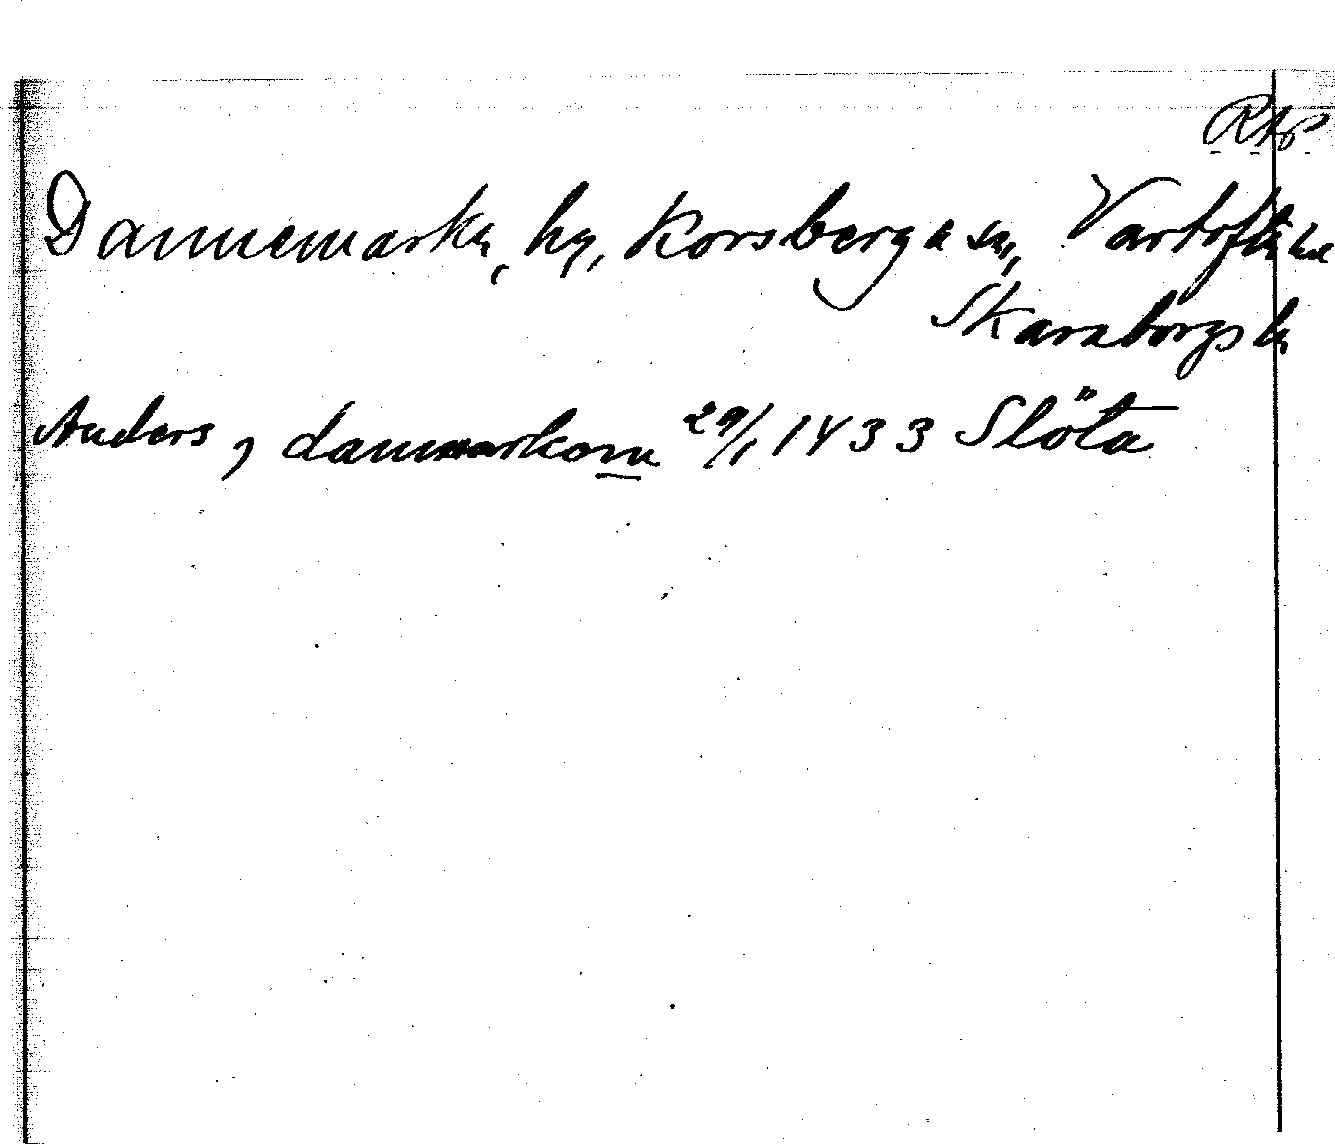 RAp
Dannemarka, by, Korsberga sn, Vartofta hd
Skaraborgs l.
Anders, danmarkom 29/1 1433 Slöta